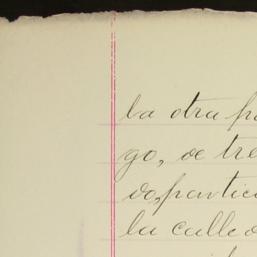 la otra pa
go, de tre
do, partic
la calle d